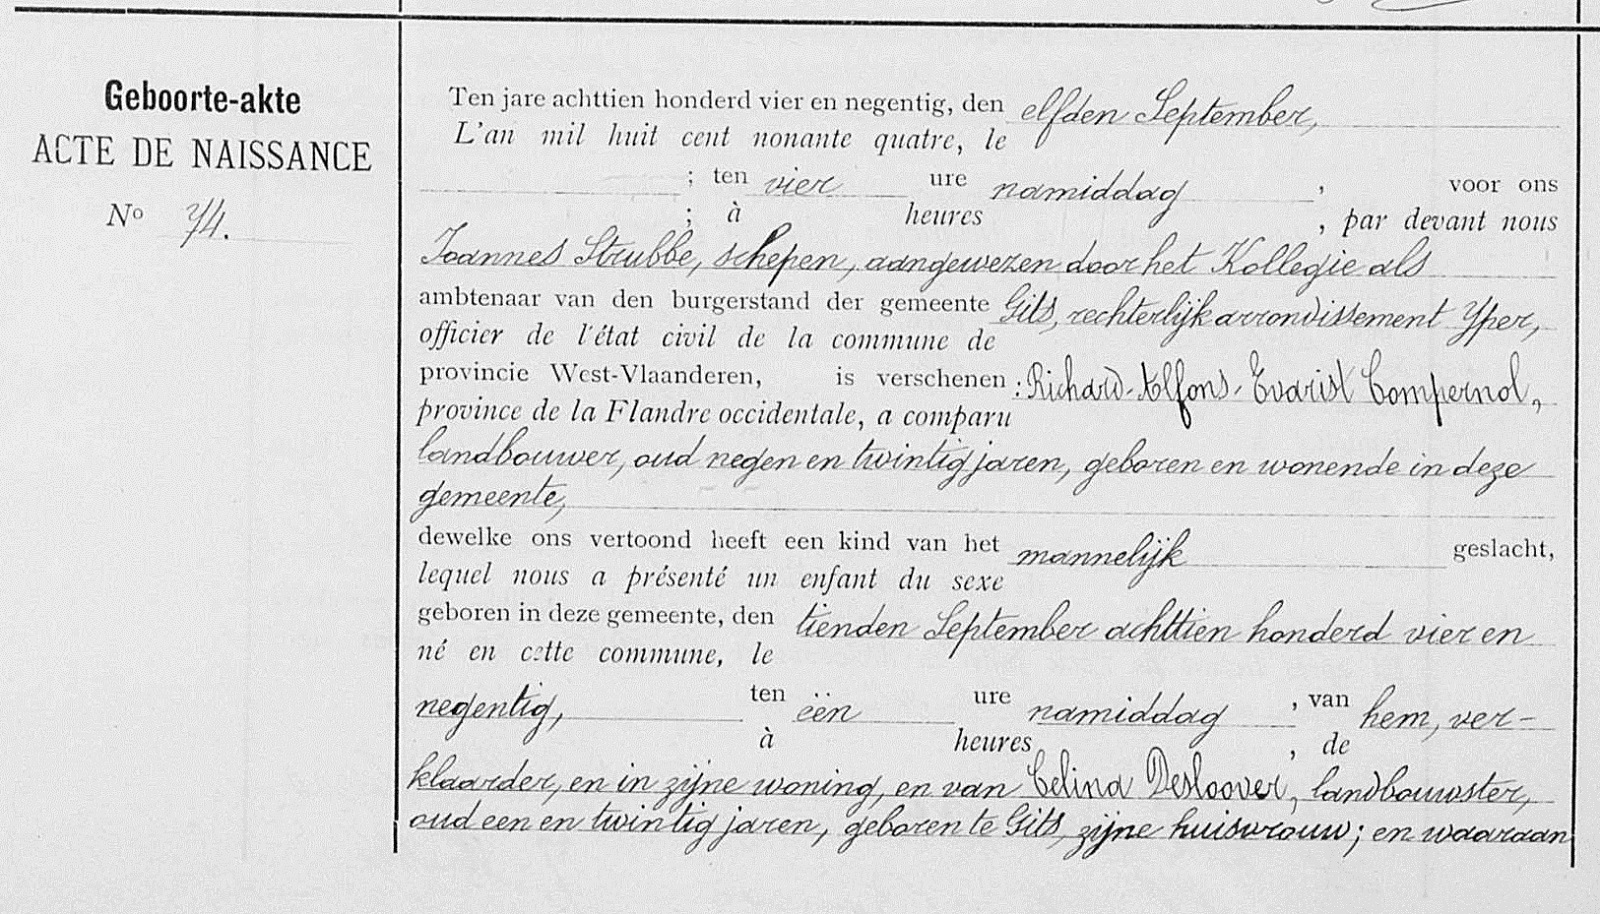 Geboorte-akte
ACTE DE NAISSANCE
No 74.
Ten jare achttien honderd vier en negentig, den elfden September,
L'an mil huit cent nonante quatre, le
; ten vier ure namiddag , voor ons
; à heures , par devant nous
Joannes Strubbe, schepen, aangewezen door het Kollegie als
ambtenaar van den burgerstand der gemeente Gits, rechterlijk arrondissement Yper,
officier de l'état civil de la commune de
provincie West-Vlaanderen, is verschenen : Richard-Alfons-Evarist Compernol,
province de la Flandre occidentale, a comparu
landbouwer, oud negen en twintig jaren, geboren en wonende in deze
gemeente,
dewelke ons vertoond heeft een kind van het mannelijk geslacht,
lequel nous a présenté un enfant du sexe
geboren in deze gemeente, den tienden September achttien honderd vier en
né en cette commune, le
negentig, ten een ure namiddag , van hem, ver-
à heures , de
klaarder, en in zijne woning, en van Celina Desloover, landbouwster,
oud een en twintig jaren, geboren te Gits, zijne huisvrouw; en waaraan